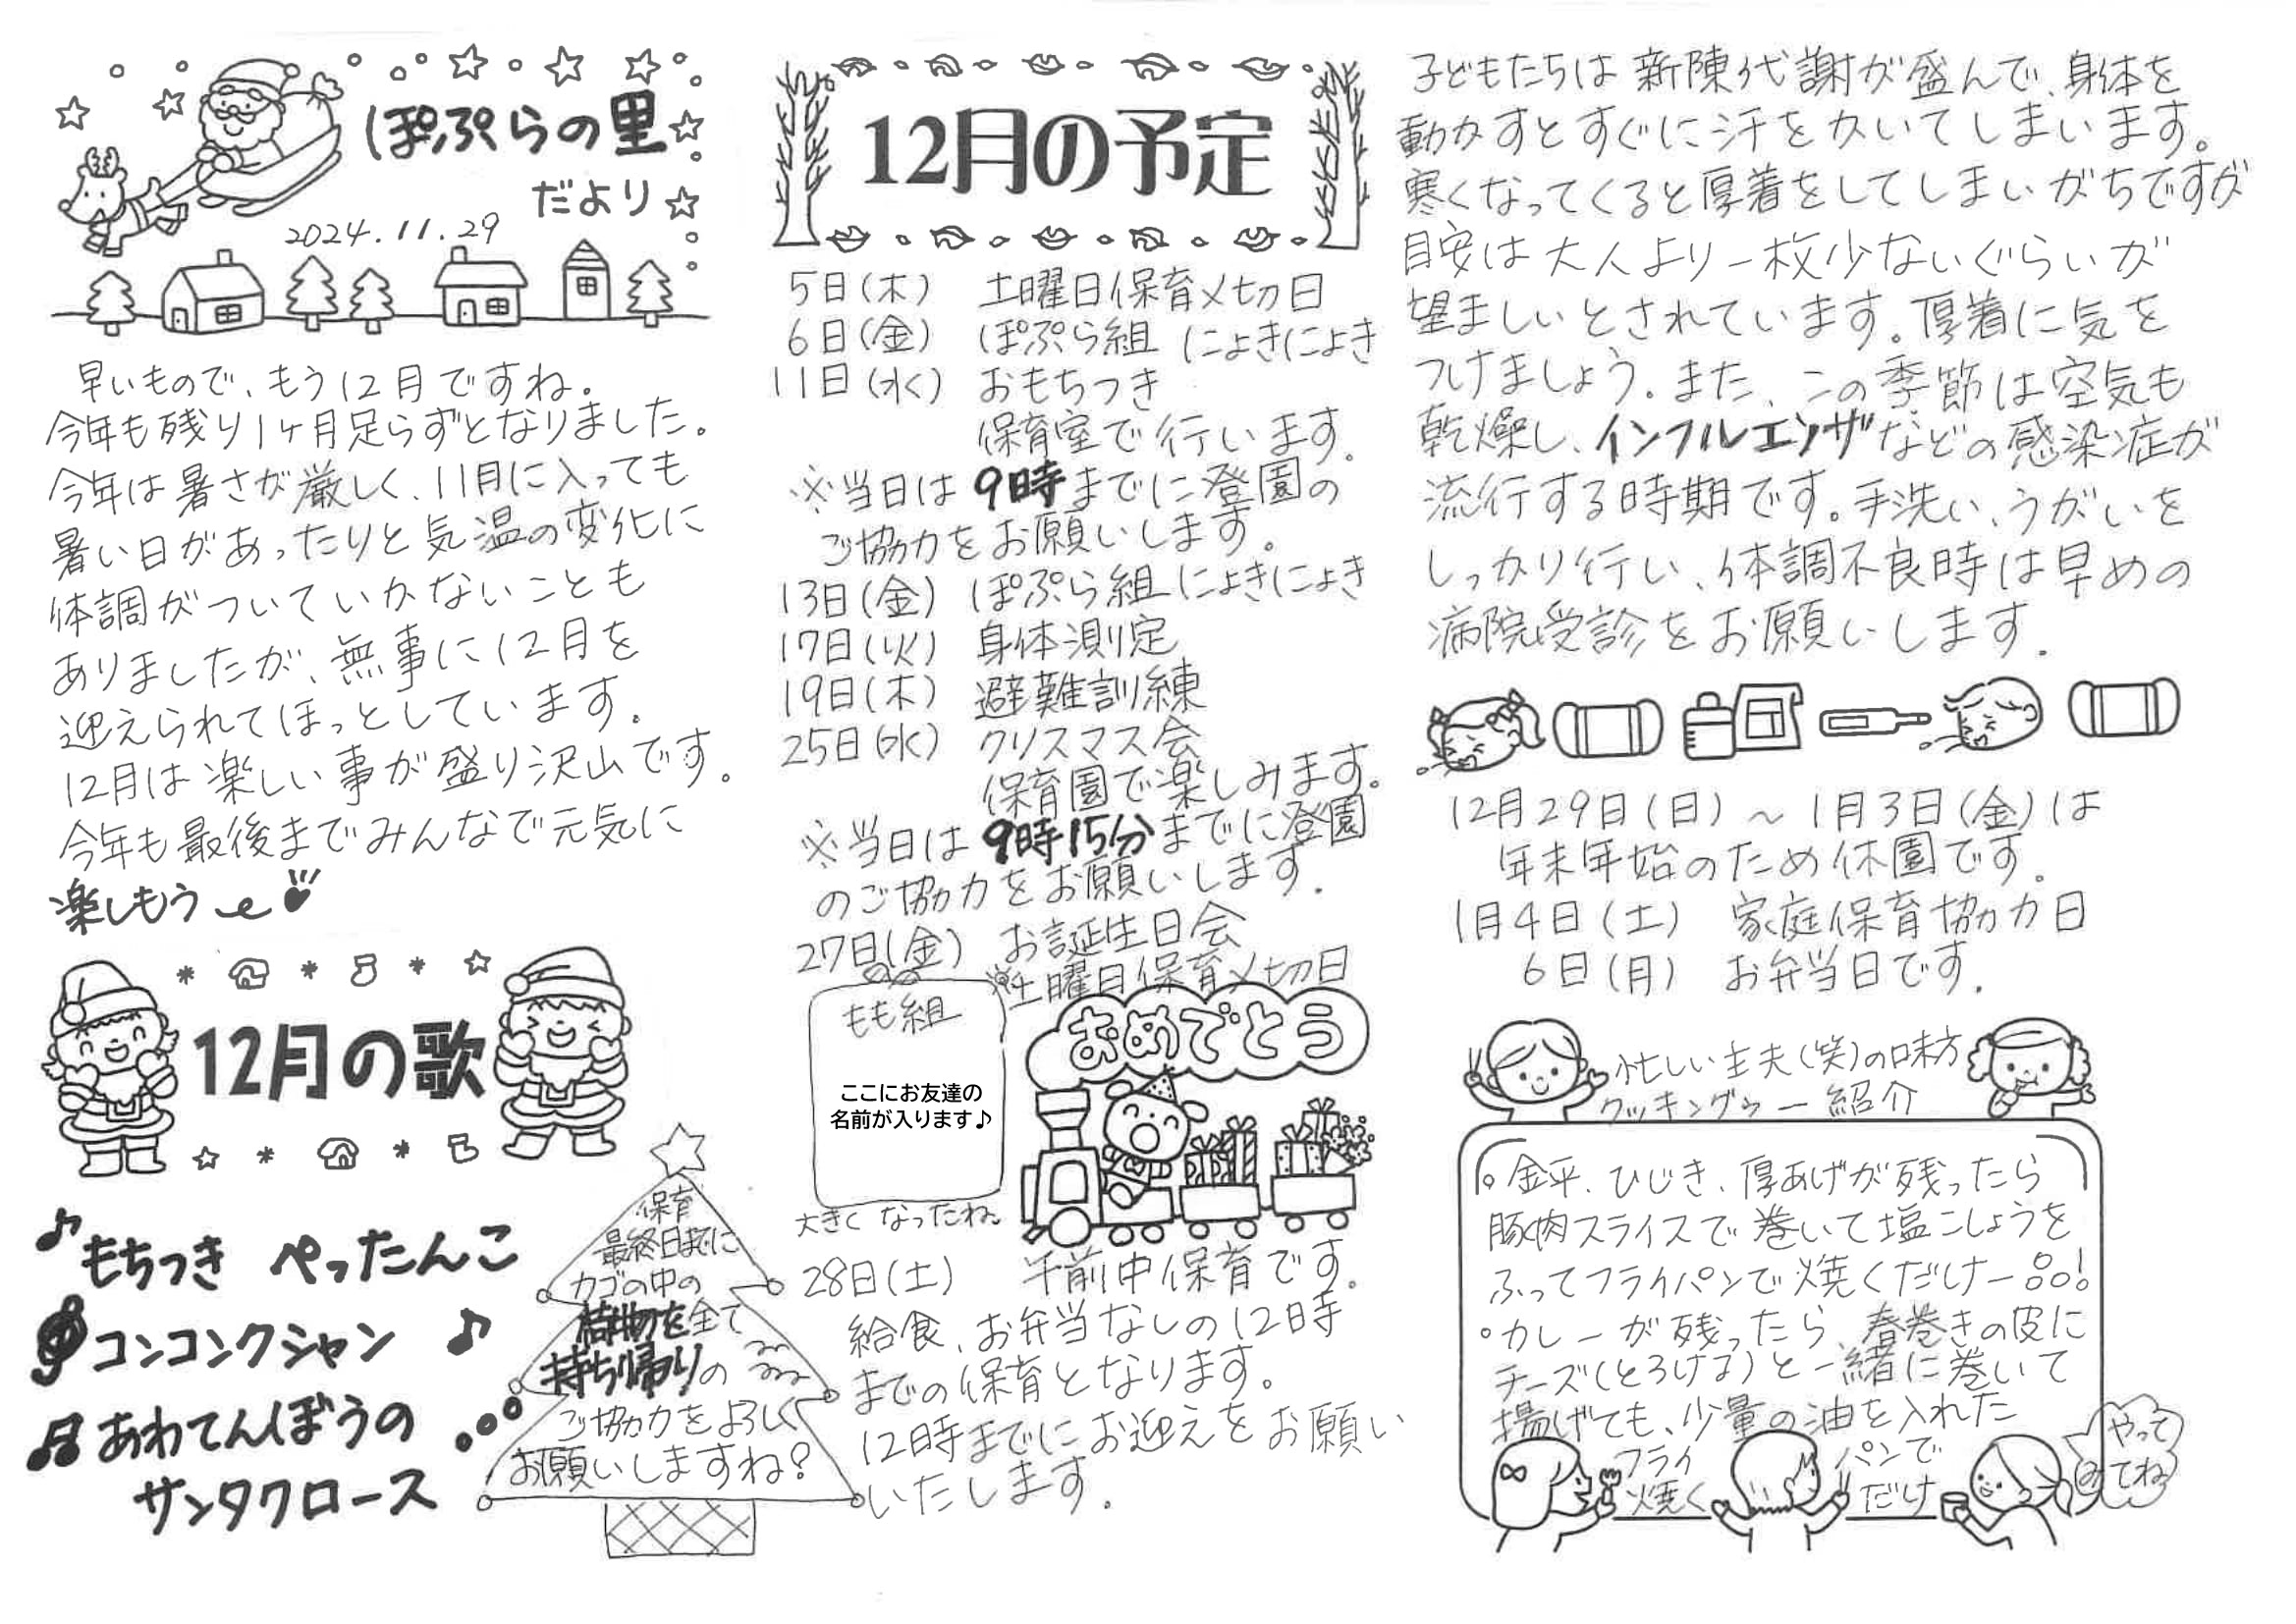 ぽぷらの里
だより
2024.11.29
早いもので、もう12月ですね。
今年も残り1ヶ月足らずとなりました。
今年は暑さが厳しく、11月に入っても
暑い日があったりと気温の変化に
体調がついていかないことも
ありましたが、無事に12月を
迎えられてほっとしています。
12月は楽しい事が盛り沢山です。
今年も最後までみんなで元気に
楽しもう
12月の歌
もちつき ぺったんこ
コンコンクシャン
あわてんぼうの
サンタクロース
保育
最終日までに
カゴの中の
荷物を全て
持ち帰りの
ご協力をよろしく
お願いしますね?
12月の予定
5日(木) 土曜日保育〆切日
6日(金) ぽぷら組 にょきにょき
11日(水) おもちつき
保育室で行います。
※当日は9時までに登園の
ご協力をお願いします。
13日(金) ぽぷら組 にょきにょき
17日(火) 身体測定
19日(木) 避難訓練
25日(水) クリスマス会
保育園で楽しみます。
※当日は9時15分までに登園
のご協力をお願いします。
27日(金) お誕生日会
土曜日保育〆切日
もも組
ここにお友達の
名前が入ります♪
大きく なったね。
おめでとう
28日(土) 午前中保育です。
給食、お弁当なしの12時
までの保育となります。
12時までにお迎えをお願い
いたします。
子どもたちは新陳代謝が盛んで、身体を
動かすとすぐに汗をかいてしまいます。
寒くなってくると厚着をしてしまいがちですが
目安は大人より一枚少ないぐらいが
望ましいとされています。厚着に気を
つけましょう。また、この季節は空気も
乾燥し、インフルエンザなどの感染症が
流行する時期です。手洗い、うがいを
しっかり行い、体調不良時は早めの
病院受診をお願いします。
12月29日(日)～1月3日(金)は
年末年始のため休園です。
1月4日(土) 家庭保育協力日
6日(月) お弁当日です。
忙しい主夫(笑)の味方
クッキングゥー紹介
。金平、ひじき、厚あげが残ったら
豚肉スライスで巻いて塩こしょうを
ふってフライパンで焼くだけー!
。カレーが残ったら、春巻きの皮に
チーズ(とろける)と一緒に巻いて
揚げても、少量の油を入れた
フライパンで
焼くだけ
やって
みてね